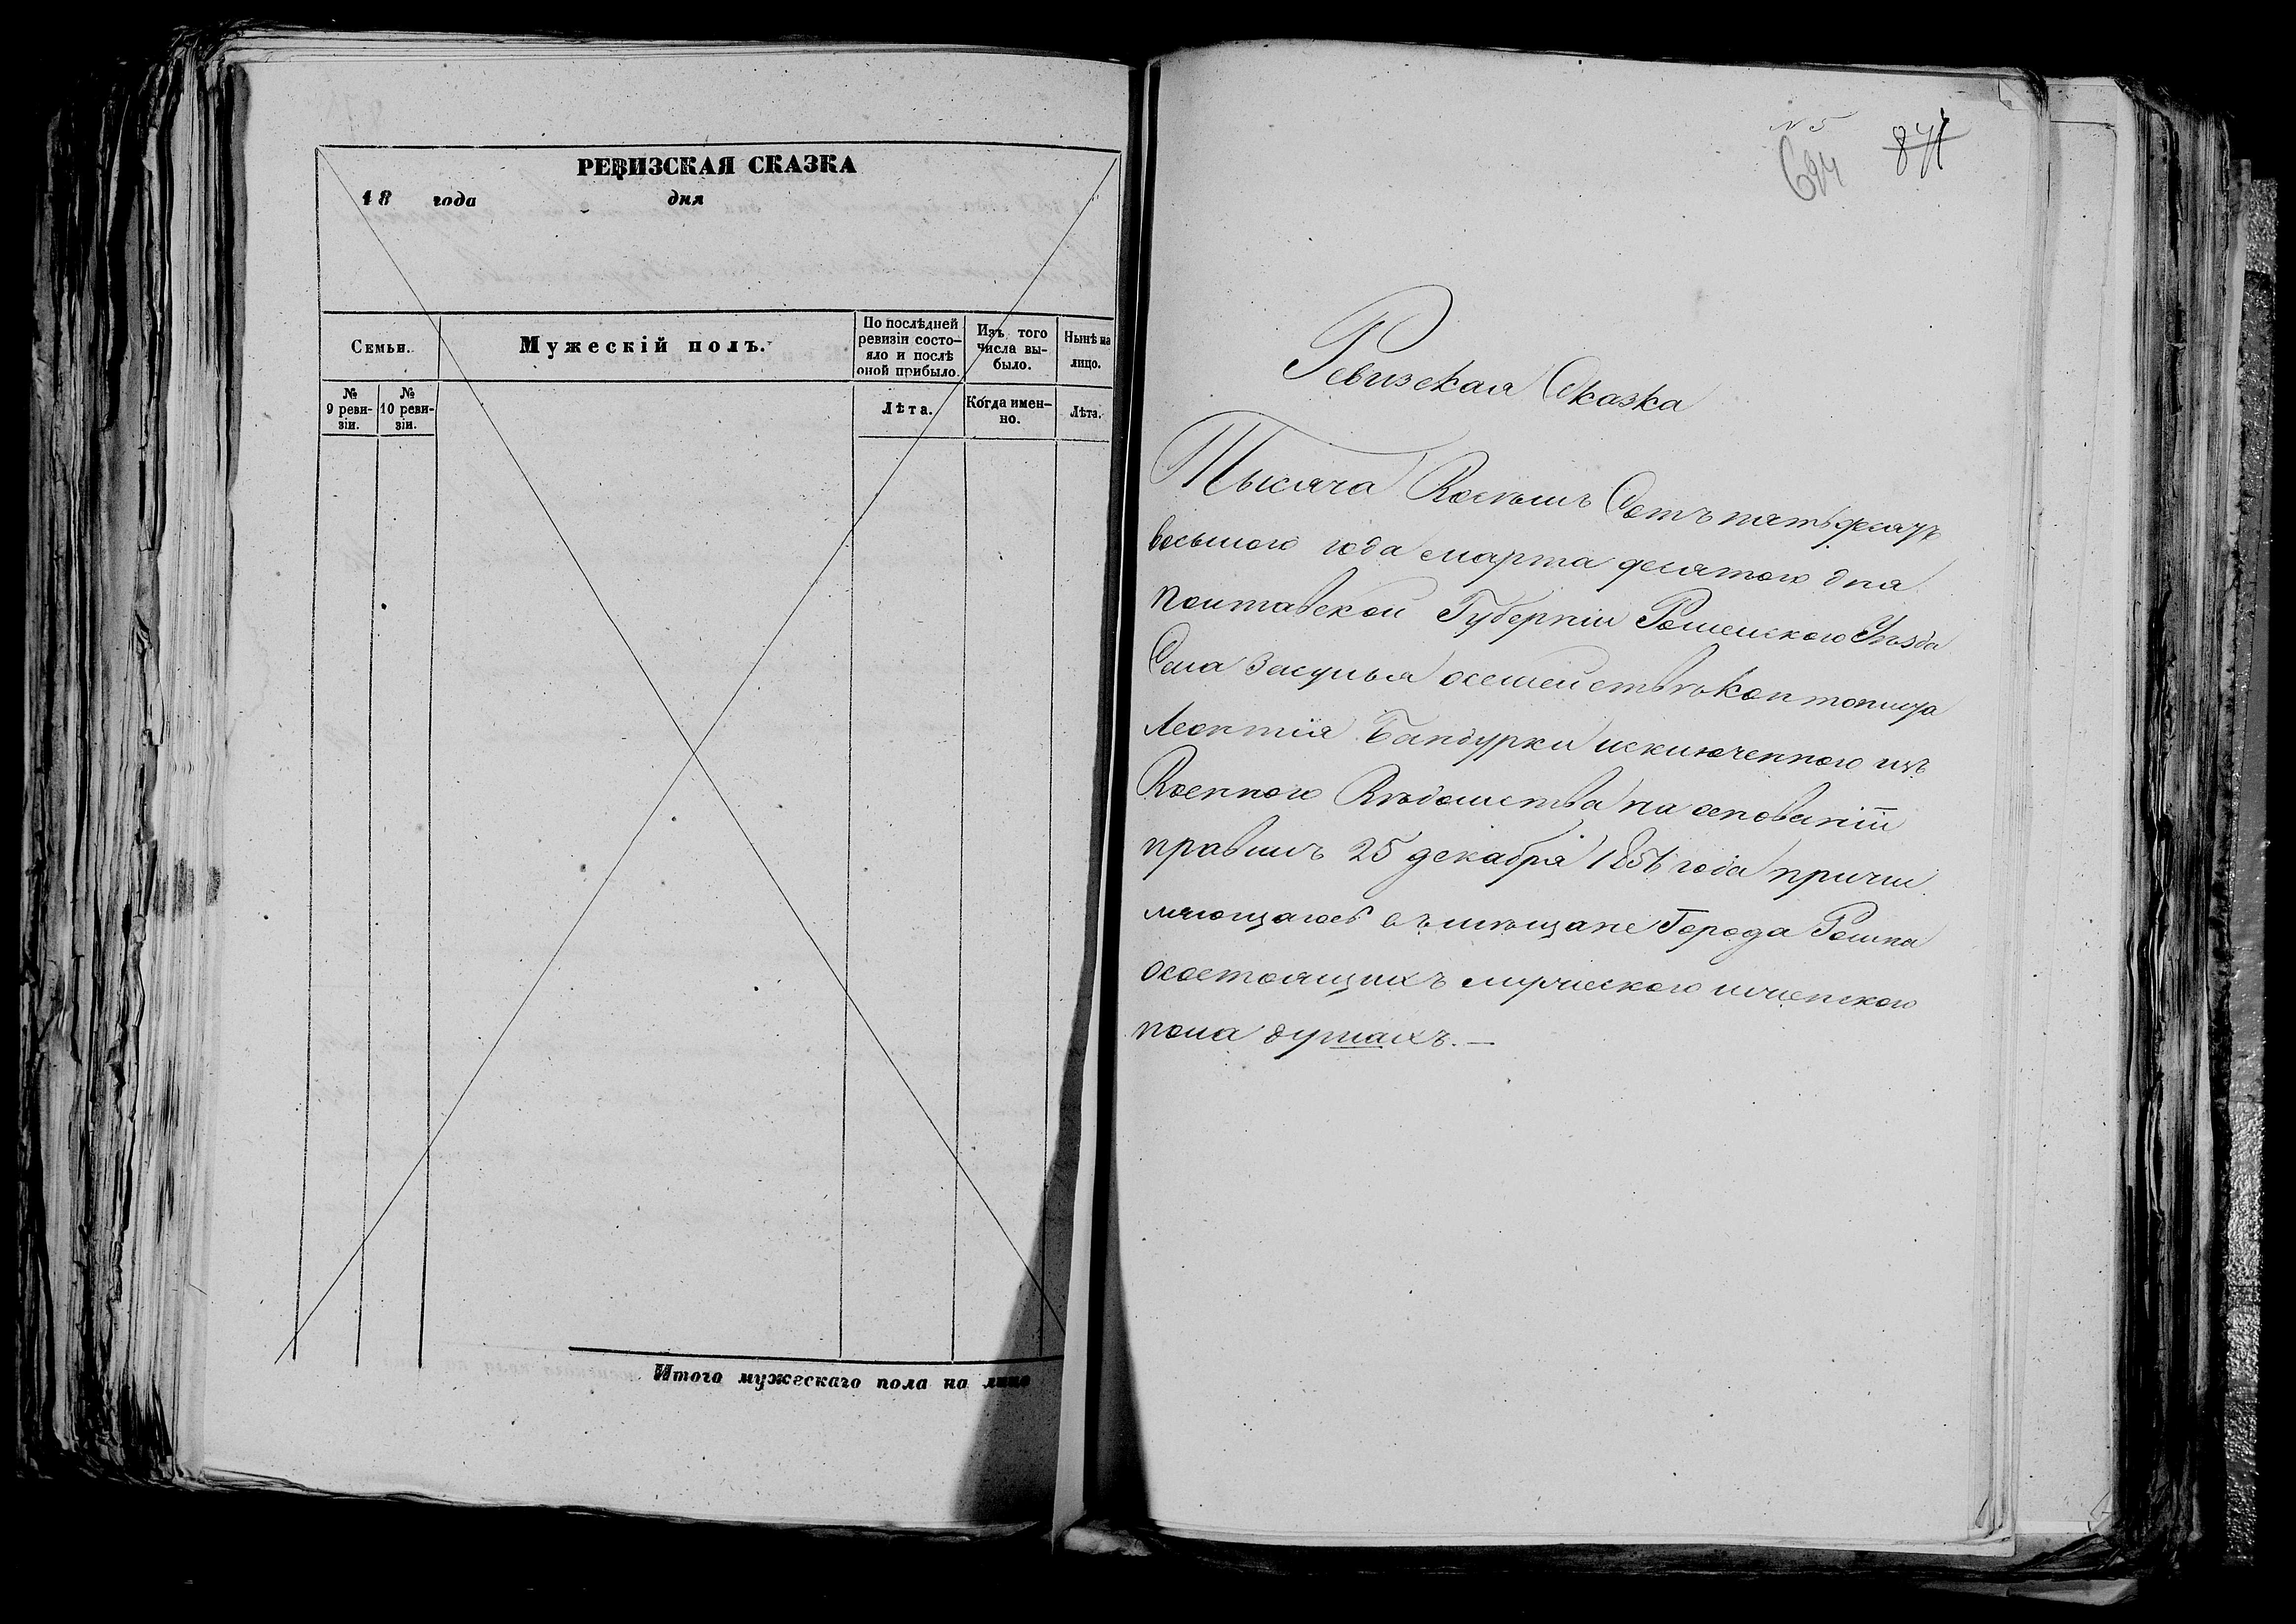 РЕВИЗСКАЯ СКАЗКА
18 года дня
Семьи.
Мужескій полъ.
По послѣдней ревизіи состо-
яло и послѣ
оной прибыло.
Изъ того
числа вы-
было.
Нынѣ на
лицо.
№
9 реви-
зіи.
№
10 реви-
зіи.
Лѣта.
Когда имен-
но.
Лѣта.
Итого мужескаго пола на лицо
N 5
694
Ревизская Сказка
Тысяча Восемь Сотъ пятьдесятъ
восьмого года марта десятого дня
Полтавской Губерніи Роменского Уѣзда
Села Засулья осемействѣ Кантониста
Леонтія Бандурки исключенного изъ
Военного Вѣдомства на основаніи
правилъ 25 декабря 1856 года причи
сляющагось въ мѣщане Города Ромна
осостоящихъ мужеского иженского
пола душахъ. —